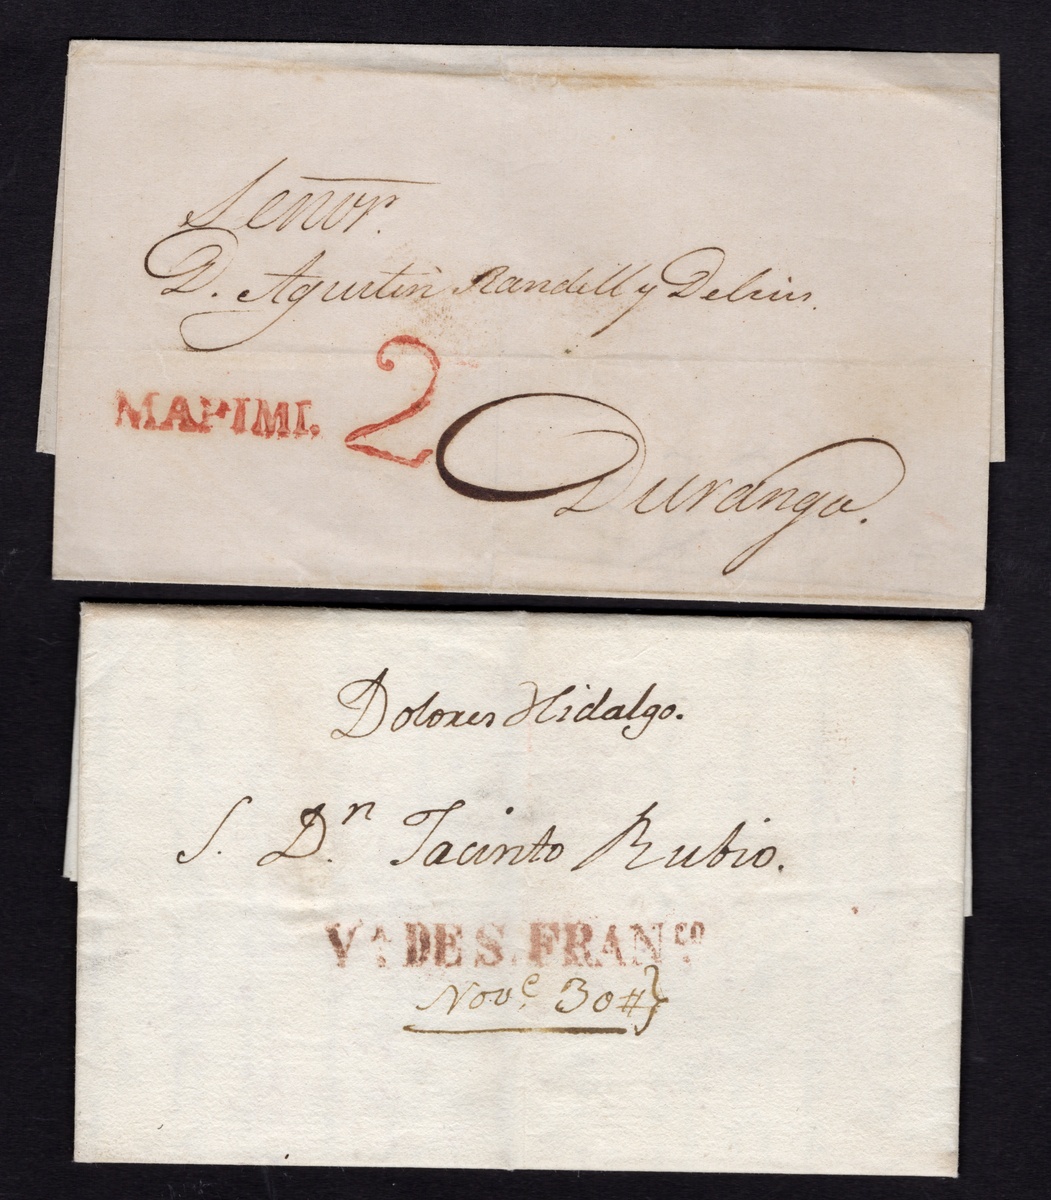 Señor.
D. Agustin Randell y Delius.
MAPIMI. 2
Durango.
Dolores Hidalgo.
S. Dⁿ. Jacinto Rubio.
Vᴬ. DE S. FRANᶜᴼ.
Novᵉ. 30 #